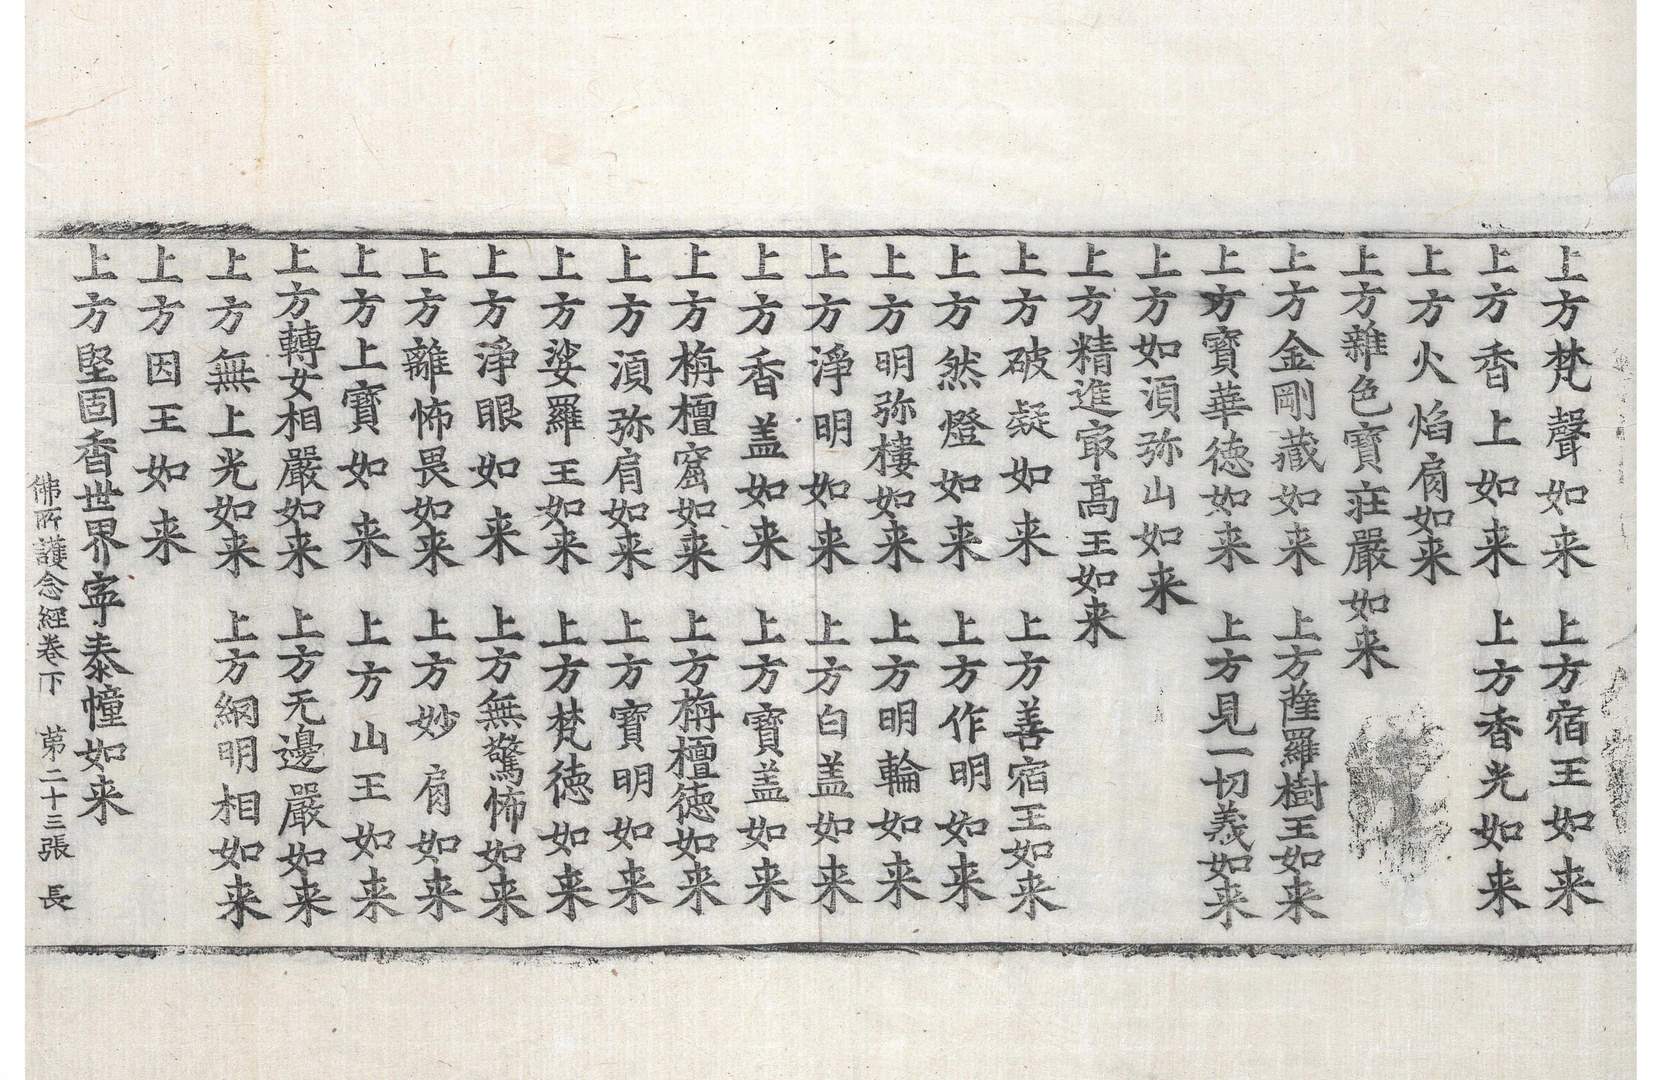 上方梵聲如来　上方宿王如来
上方香上如来　上方香光如来
上方火焰肩如来
上方雜色寶莊嚴如来
上方金剛藏如来　上方薩羅樹王如来
上方寶華德如来　上方見一切義如来
上方如湏弥山如来
上方精進㝡高王如来
上方破疑如来　上方善宿王如来
上方然燈如来　上方作明如来
上方明弥樓如来　上方明輪如来
上方淨明如来　上方白盖如来
上方香盖如来　上方寶盖如来
上方栴檀窟如来　上方栴檀德如来
上方湏弥肩如来　上方寶明如来
上方娑羅王如来　上方梵德如来
上方淨眼如来　上方無驚怖如来
上方離怖畏如来　上方妙肩如来
上方上寶如来　上方山王如来
上方轉女相嚴如来　上方无邊嚴如来
上方無上光如来　上方網明相如来
上方因王如来
上方堅固香世界寧泰幢如来
佛所護念經卷下　苐二十三張　長